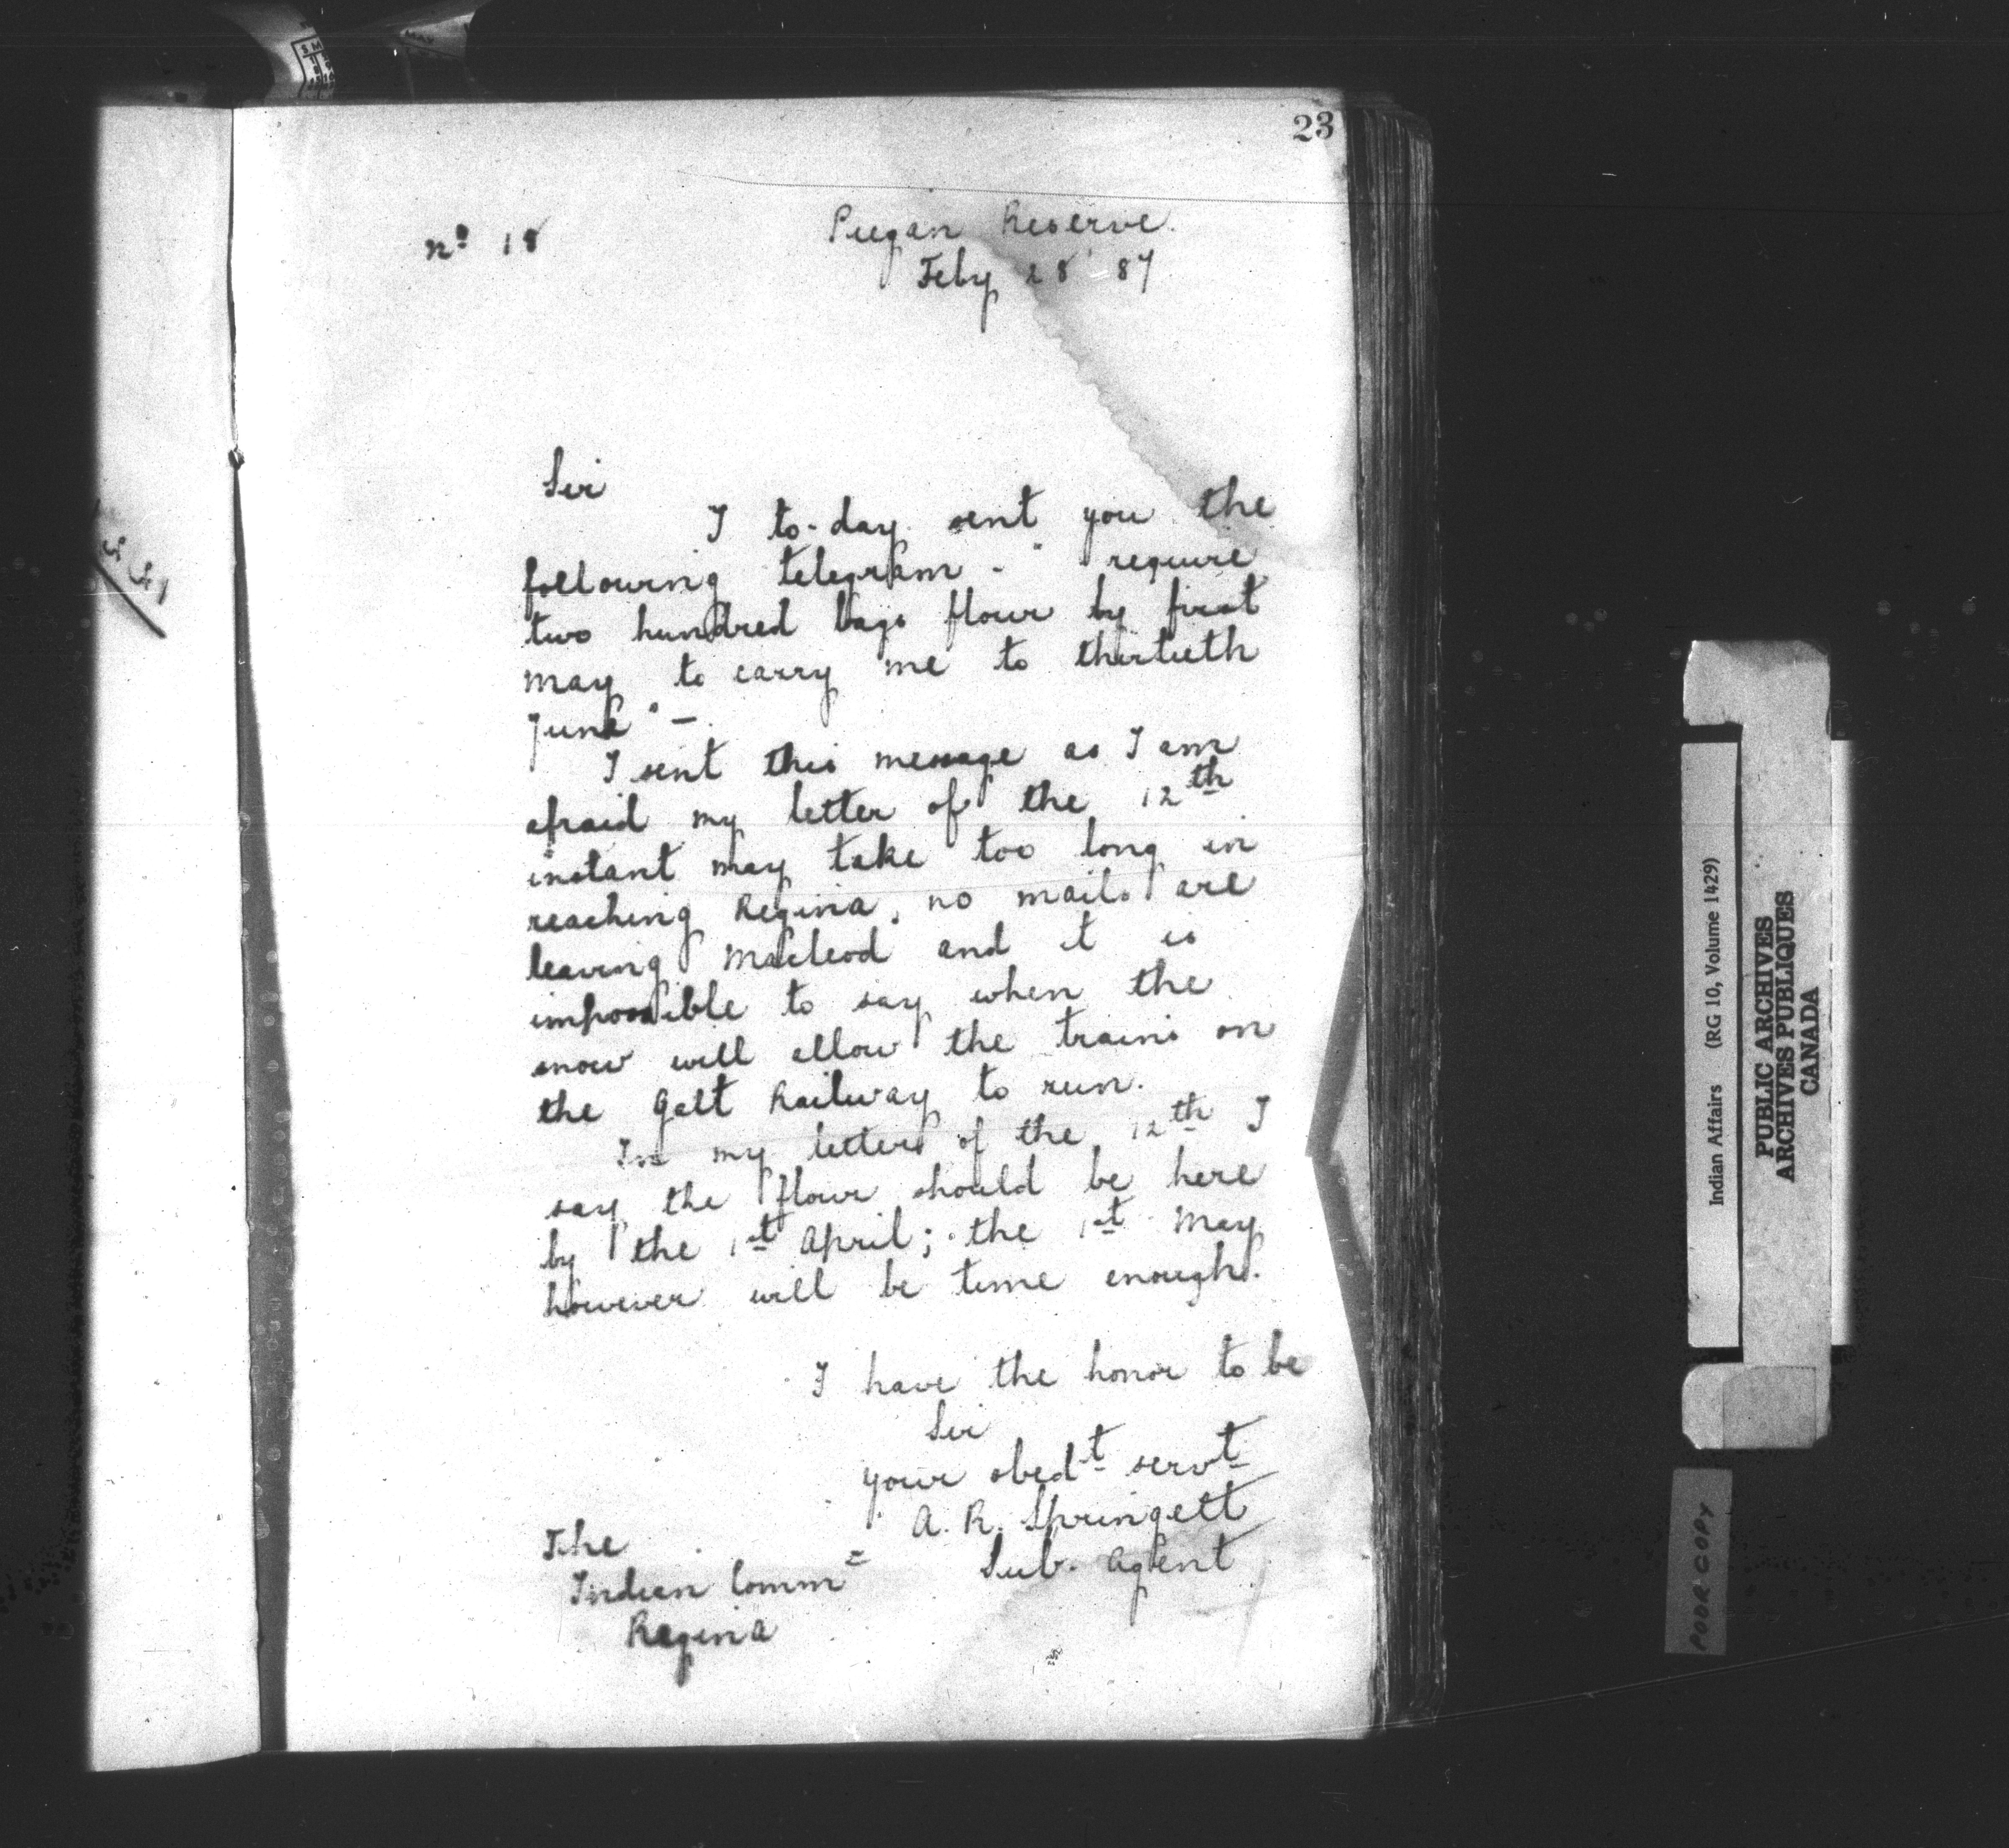 23
No 18
Piegan Reserve.
Feby 28 87
Sir
I to-day sent you the
following telegram - " require
two hundred bags flour by first
May to carry me to thirtieth
June " -
I sent this message as I am
afraid my letter of the 12th
instant may take too long in
reaching Regina, no mails are
leaving Macleod and it is
impossible to say when the
snow will allow the trains on
the Galt Railway to run.
In my letter of the 12th I
say the flour should be here
by the 1st April; the 1st May
however will be time enough.
I have the honor to be
Sir
your obedt servt
A. R. Springett
Sub. Agent
The
Indian Comm
Regina
Indian Affairs (RG 10, Volume 1429)
PUBLIC ARCHIVES
ARCHIVES PUBLIQUES
CANADA
POOR COPY